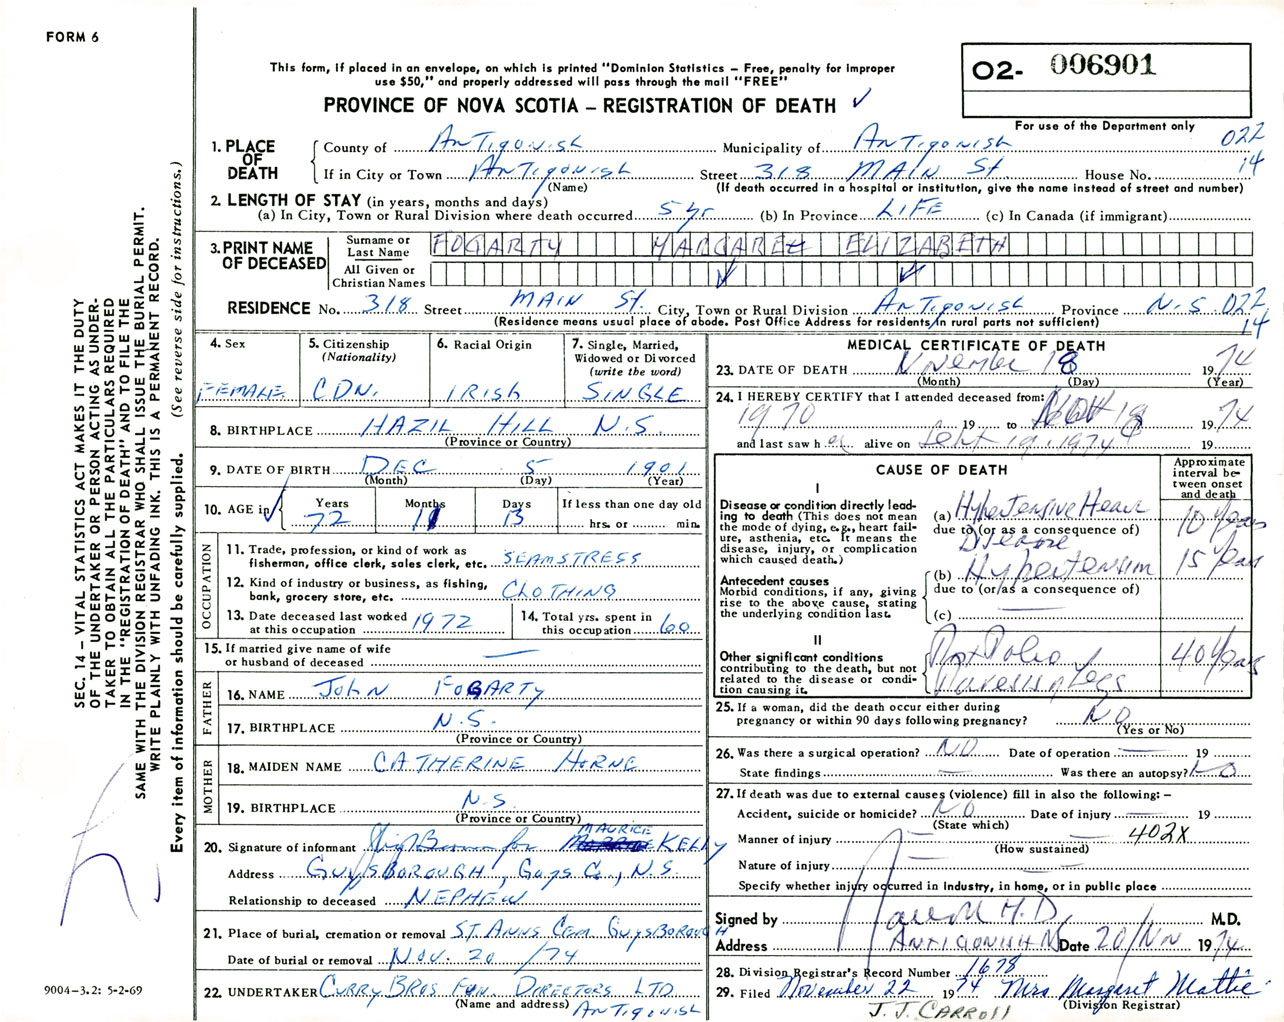 FORM 6
This form, if placed in an envelope, on which is printed "Dominion Statistics – Free, penalty for improper
use $50," and properly addressed will pass through the mail "FREE"
O2- 006901
PROVINCE OF NOVA SCOTIA – REGISTRATION OF DEATH ✓
For use of the Department only
1. PLACE OF DEATH
County of Antigonish Municipality of Antigonish 022
If in City or Town Antigonish Street 318 MAIN St House No. 14
(Name) (If death occurred in a hospital or institution, give the name instead of street and number)
2. LENGTH OF STAY (in years, months and days)
(a) In City, Town or Rural Division where death occurred 5 yr (b) In Province LIFE (c) In Canada (if immigrant)
3. PRINT NAME OF DECEASED
Surname or Last Name FOGARTY MARGARET ELIZABETH
All Given or Christian Names
RESIDENCE No. 318 Street MAIN St. City, Town or Rural Division Antigonish Province N.S. 022
(Residence means usual place of abode. Post Office Address for residents in rural parts not sufficient) 14
4. Sex FEMALE
5. Citizenship (Nationality) CDN.
6. Racial Origin IRISH
7. Single, Married, Widowed or Divorced (write the word) SINGLE
8. BIRTHPLACE HAZIL HILL N.S.
(Province or Country)
9. DATE OF BIRTH DEC 5 1901
(Month) (Day) (Year)
10. AGE in Years 72 Months 11 Days 13 If less than one day old hrs. or min.
OCCUPATION
11. Trade, profession, or kind of work as fisherman, office clerk, sales clerk, etc. SEAMSTRESS
12. Kind of industry or business, as fishing, bank, grocery store, etc. CLOTHING
13. Date deceased last worked at this occupation 1972
14. Total yrs. spent in this occupation 60
15. If married give name of wife or husband of deceased —
FATHER
16. NAME John FOGARTY
17. BIRTHPLACE N.S.
(Province or Country)
MOTHER
18. MAIDEN NAME CATHERINE HORNE
19. BIRTHPLACE N.S.
(Province or Country)
20. Signature of informant for MAURICE KELLY
Address GUYSBOROUGH, Guys Co., N.S.
Relationship to deceased NEPHEW
21. Place of burial, cremation or removal ST. ANNS CEM. GUYSBOROUGH
Date of burial or removal NOV. 20 /74
22. UNDERTAKER CURRY BROS FUN. DIRECTORS LTD
(Name and address) Antigonish
MEDICAL CERTIFICATE OF DEATH
23. DATE OF DEATH November 18 19 74
(Month) (Day) (Year)
24. I HEREBY CERTIFY that I attended deceased from:
1970 19 to Nov 18 19 74
and last saw her alive on Sept 19, 1974 19
CAUSE OF DEATH
Approximate interval between onset and death
I
Disease or condition directly leading to death (This does not mean the mode of dying, e.g., heart failure, asthenia, etc. It means the disease, injury, or complication which caused death.)
(a) Hypertensive Heart Disease 10 years
due to (or as a consequence of)
Antecedent causes
Morbid conditions, if any, giving rise to the above cause, stating the underlying condition last.
(b) Hypertension 15 years
due to (or as a consequence of)
(c) —
II
Other significant conditions contributing to the death, but not related to the disease or condition causing it.
Post Polio Paresis of Legs 40 years
25. If a woman, did the death occur either during pregnancy or within 90 days following pregnancy? NO
(Yes or No)
26. Was there a surgical operation? NO Date of operation — 19
State findings — Was there an autopsy? No
27. If death was due to external causes (violence) fill in also the following: –
Accident, suicide or homicide? NO Date of injury — 19
(State which)
Manner of injury — 402X
(How sustained)
Nature of injury —
Specify whether injury occurred in industry, in home, or in public place
Signed by M.D. M.D.
Address ANTIGONISH N.S. Date 20/Nov 19 74
28. Division Registrar's Record Number 1678
29. Filed November 22 19 74 Mrs Margaret Mattie
(Division Registrar)
J. J. CARROLL
SEC. 14 – VITAL STATISTICS ACT MAKES IT THE DUTY
OF THE UNDERTAKER OR PERSON ACTING AS UNDER-
TAKER TO OBTAIN ALL THE PARTICULARS REQUIRED
IN THE "REGISTRATION OF DEATH" AND TO FILE THE
SAME WITH THE DIVISION REGISTRAR WHO SHALL ISSUE THE BURIAL PERMIT.
WRITE PLAINLY WITH UNFADING INK. THIS IS A PERMANENT RECORD.
Every item of information should be carefully supplied. (See reverse side for instructions.)
9004-3.2: 5-2-69